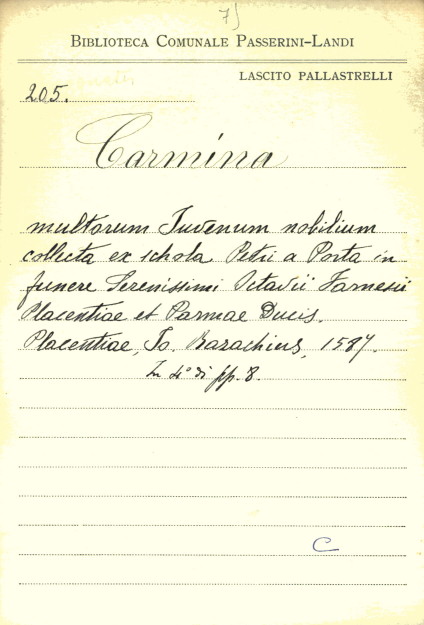 7)
BIBLIOTECA COMUNALE PASSERINI-LANDI
LASCITO PALLASTRELLI
205.
Carmina
multorum Juvenum nobilium
collecta ex schola Petri a Porta in
funere Serenissimi Octavii Farnesii
Placentiae et Parmae Ducis.
Placentiae, Io. Bazachius, 1587.
In 4° di pp. 8.
C